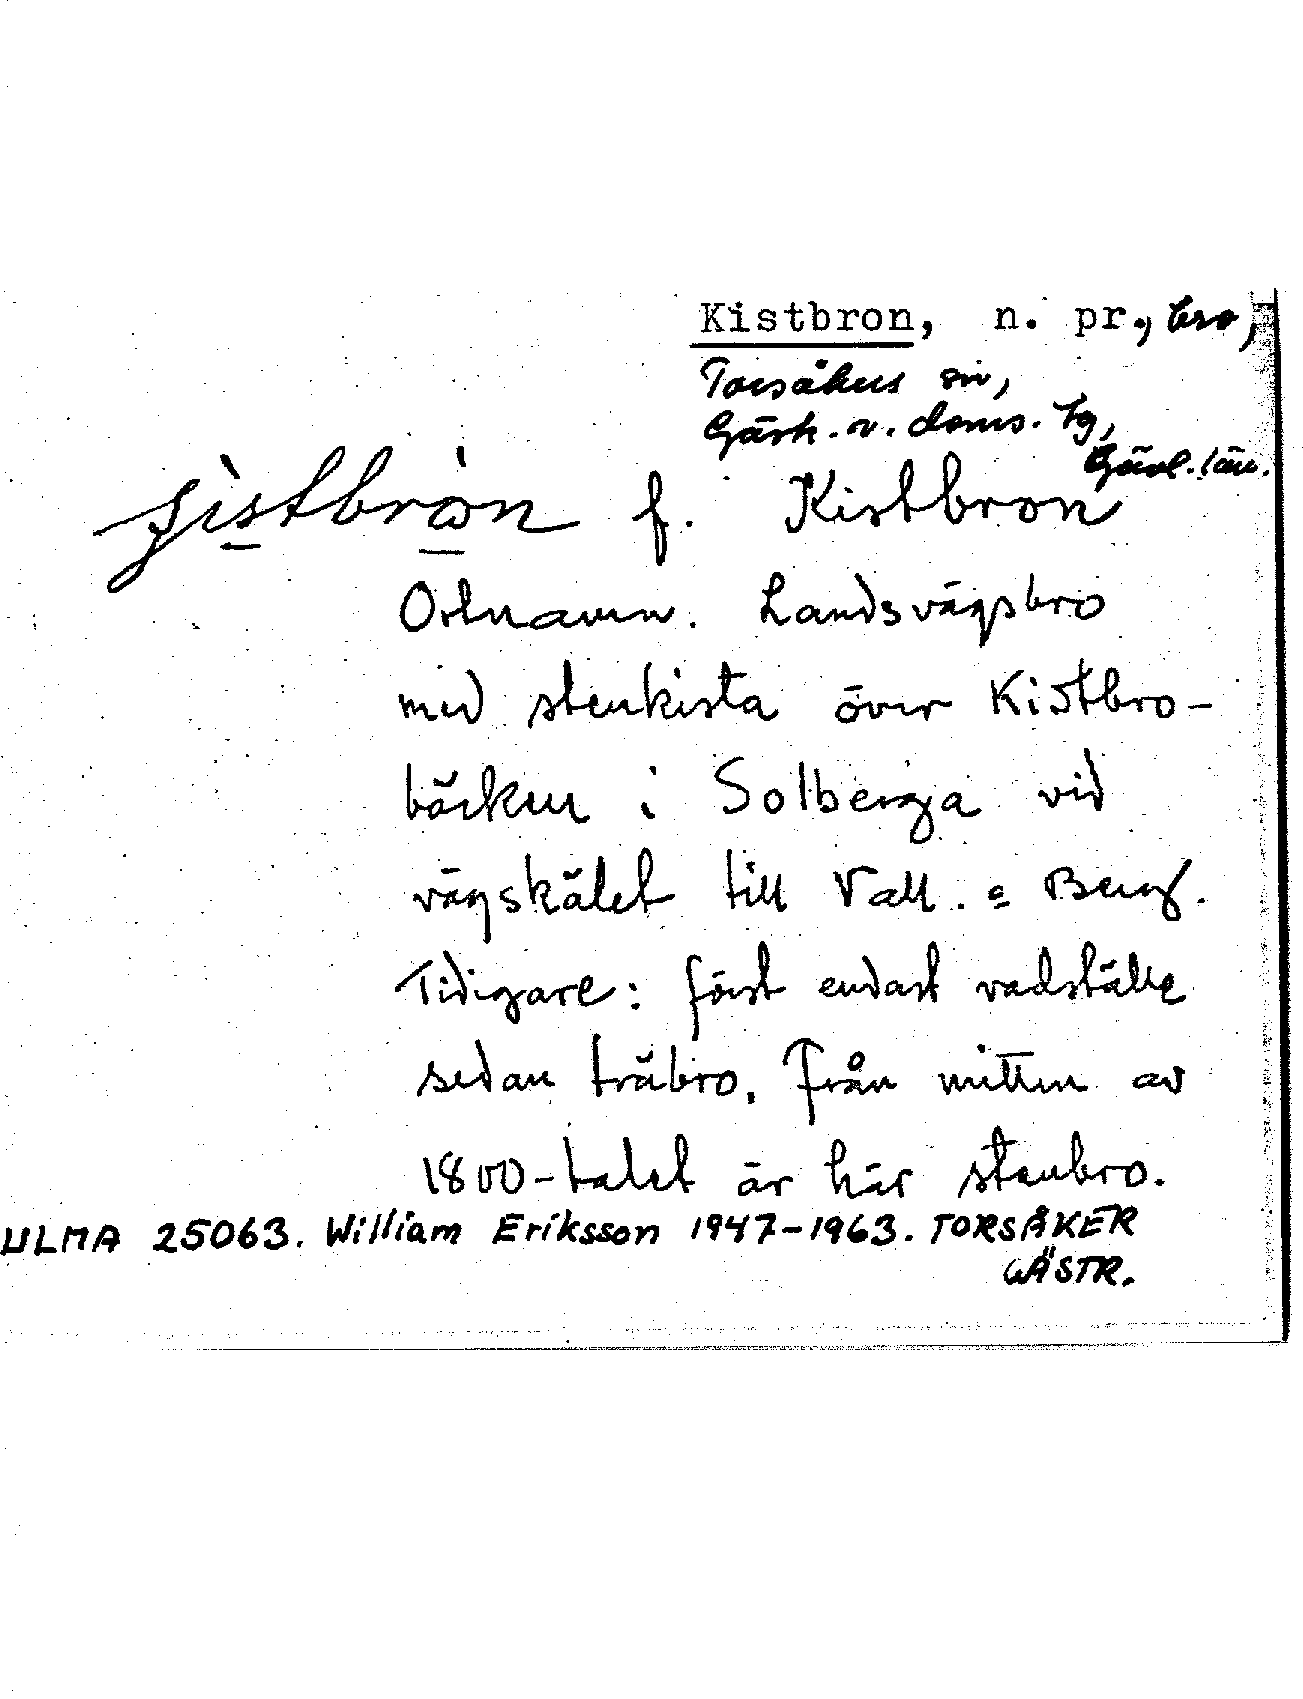 Kistbron, n. pr., bro,
Torsåkers sn,
Gästr. v. doms. tg,
Gävl. län.
f. Kistbron
Ortnamn. Landsvägsbro
med stenkista över Kistbro-
bäcken i Solberga vid
vägskälet till Vall. o Berg.
Tidigare: först endast vadställe
sedan träbro. Från mitten av
1800-talet är här stenbro.
ULMA 25063. William Eriksson 1947-1963. TORSÅKER
GÄSTR.